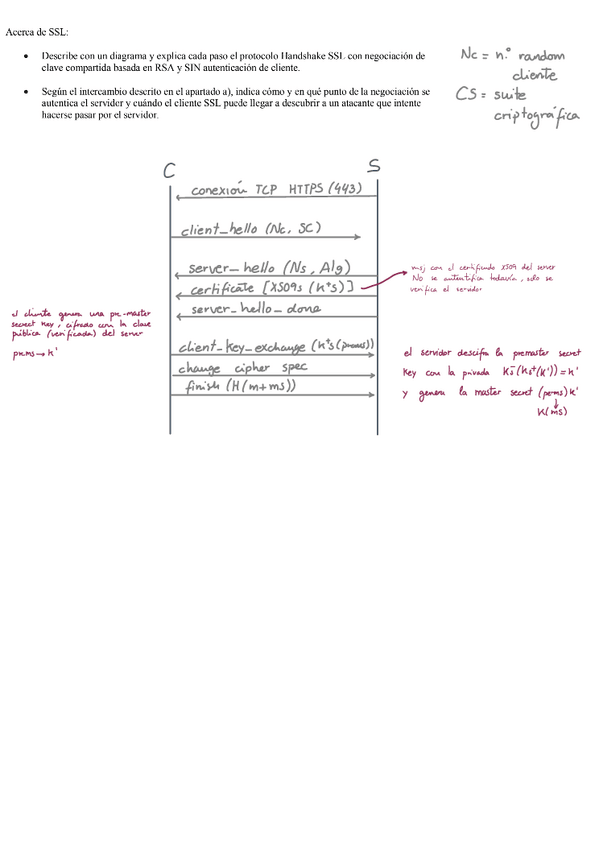 Acerca de SSL:
• Describe con un diagrama y explica cada paso el protocolo Handshake SSL con negociación de
clave compartida basada en RSA y SIN autenticación de cliente.
• Según el intercambio descrito en el apartado a), indica cómo y en qué punto de la negociación se
autentica el servidor y cuándo el cliente SSL puede llegar a descubrir a un atacante que intente
hacerse pasar por el servidor.
Nc = n.º random
cliente
CS = suite
criptográfica
C S
conexión TCP HTTPS (443)
client_hello (Nc, SC)
server_hello (Ns, Alg)
certificate [X509s (K+s)]
server_hello_done
client_key_exchange (K+s(prems))
change cipher spec
finish (H(m+ms))
msj con el certificado X509 del server
NO se autentifica todavía, solo se
verifica el servidor
el cliente genera una pre-master
secret key, cifrado con la clave
pública (verificada) del server
prems → K'
el servidor descifra la premaster secret
Key con la privada Ks-(Ks+(K')) = K'
y genera la master secret (prems) K'
↓
K(ms)